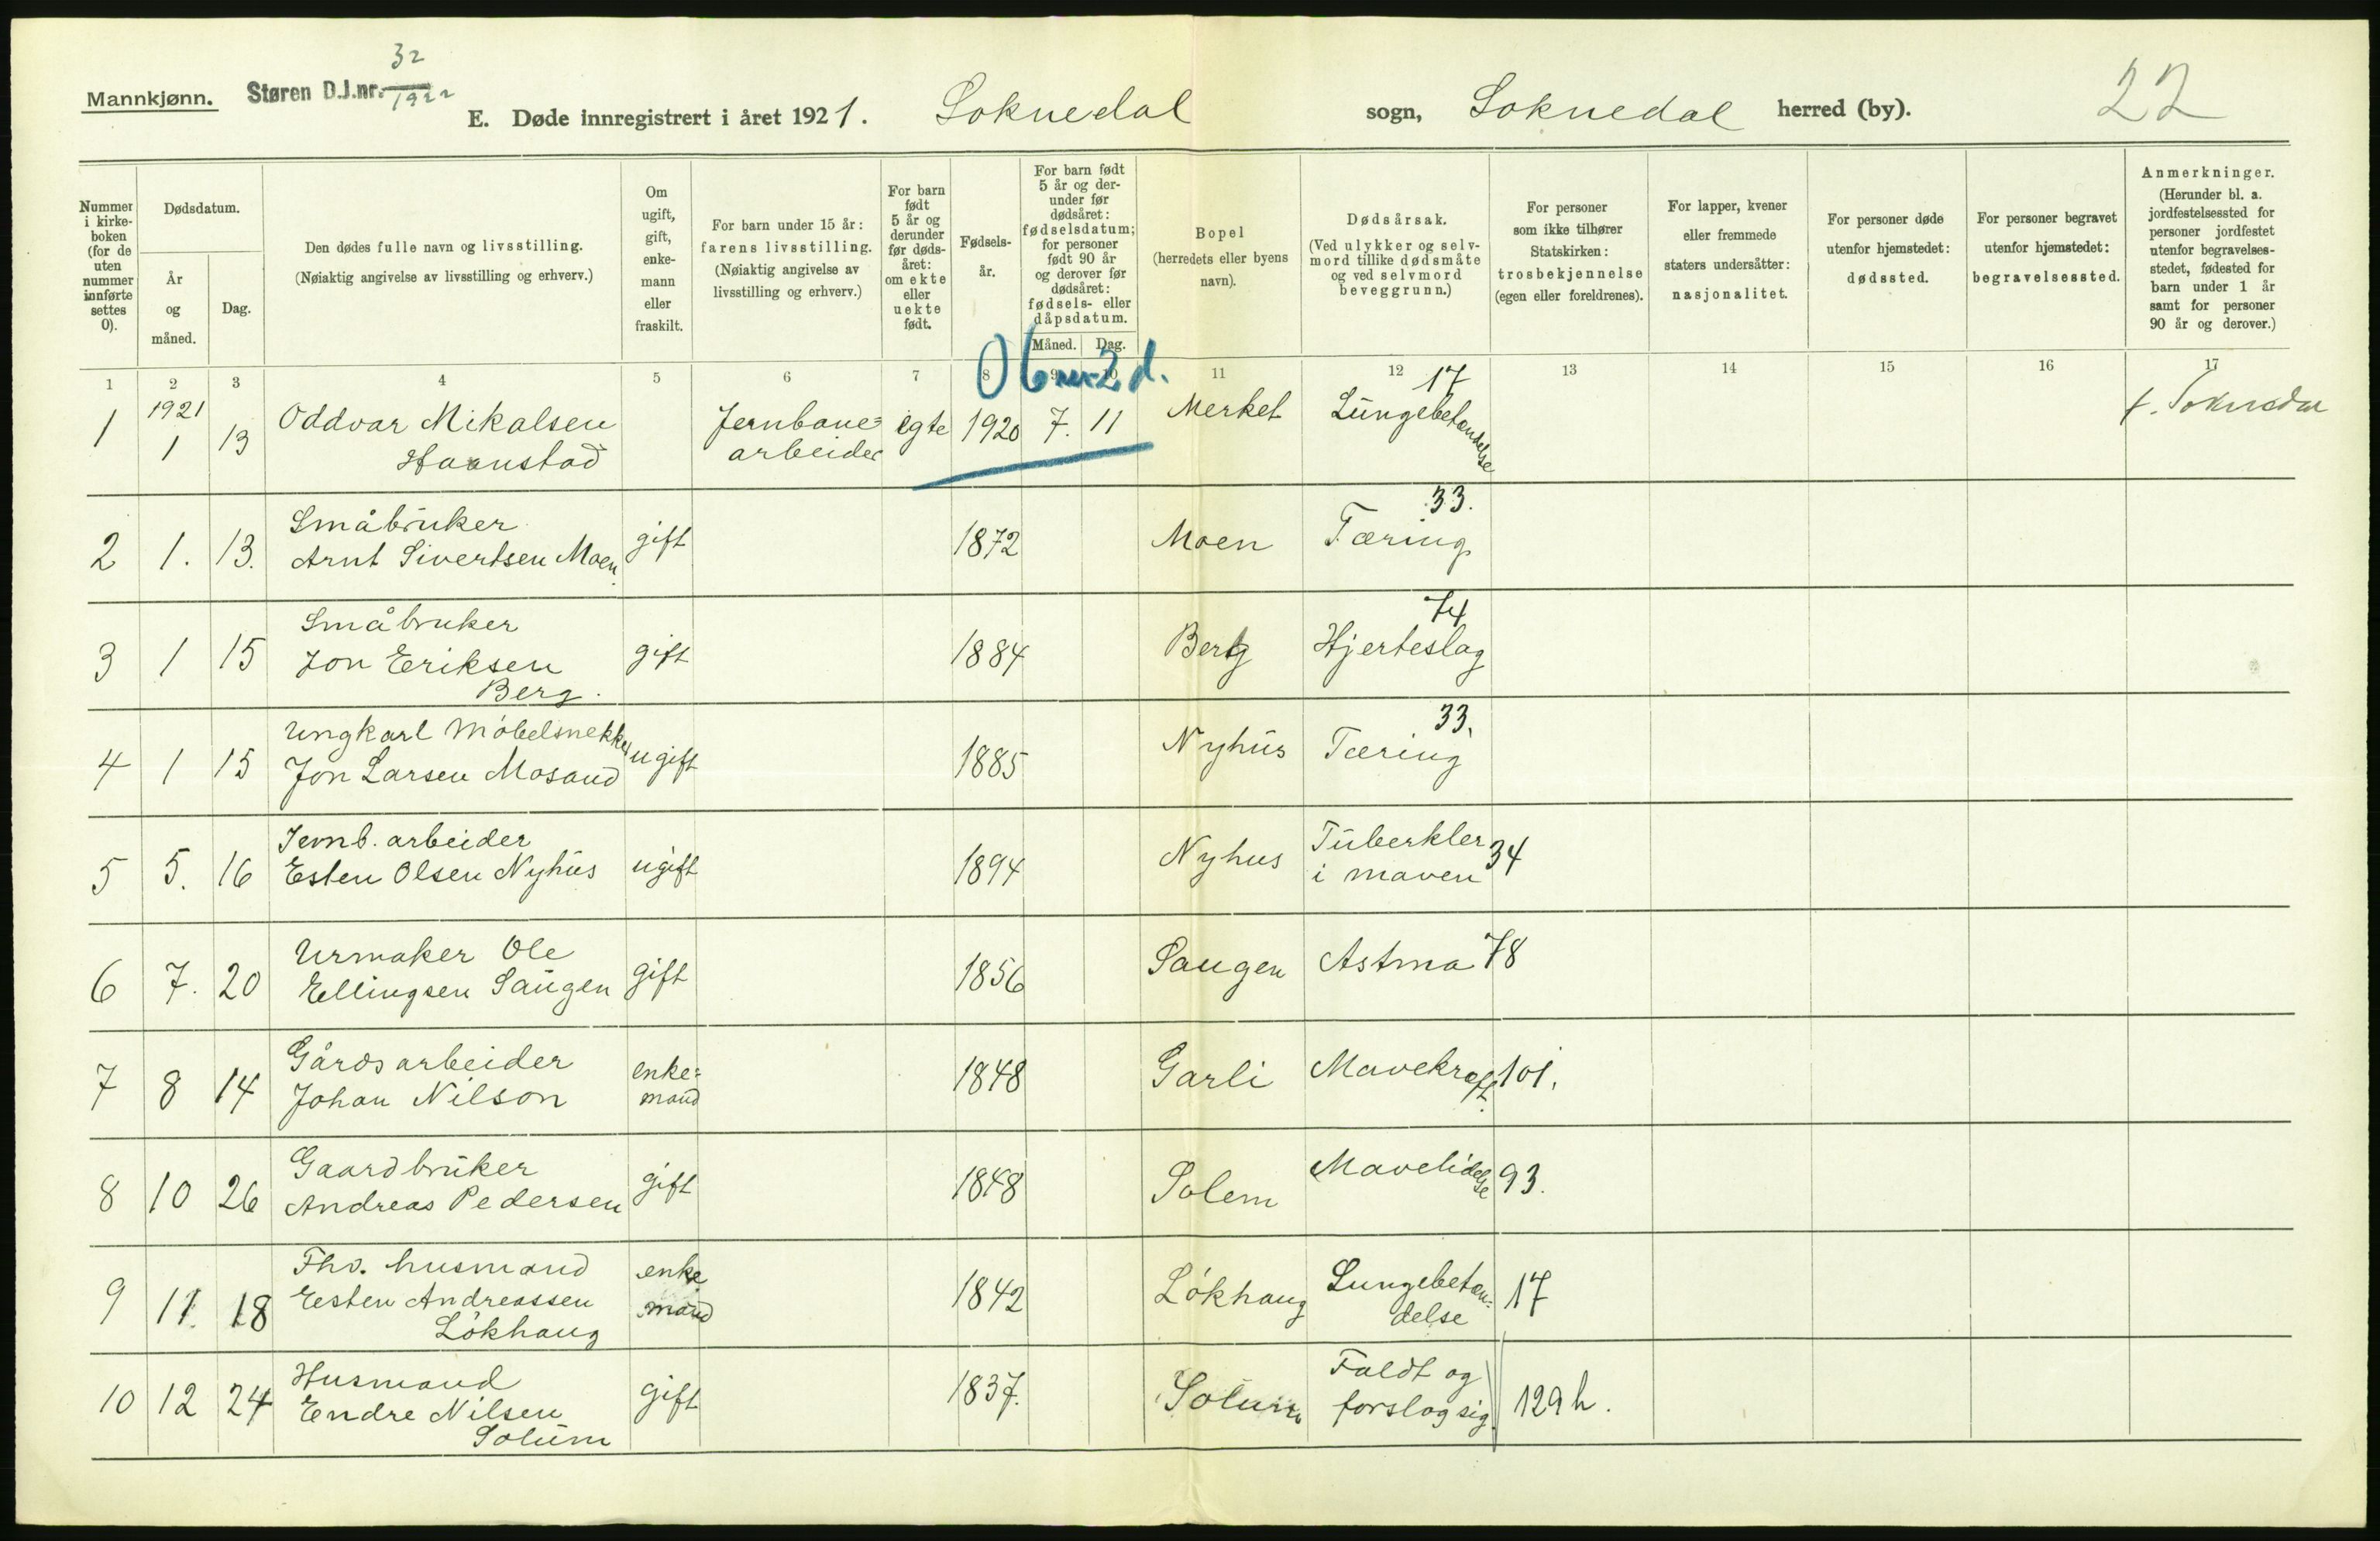 Mannkjønn.
Støren D.J.nr. 32/1922
E. Døde innregistrert i året 1921. Soknedal sogn, Soknedal herred (by).
22
Nummer i kirke-boken (for de uten nummer innførte settes 0).
Dødsdatum.
År og måned.
Dag.
Den dødes fulle navn og livsstilling.
(Nøiaktig angivelse av livsstilling og erhverv.)
Om ugift, gift, enke-mann eller fraskilt.
For barn under 15 år: farens livsstilling.
(Nøiaktig angivelse av livsstilling og erhverv.)
For barn født 5 år og derunder før døds-året: om ekte eller uekte født.
Fødsels-år.
For barn født 5 år og der-under før dødsåret: fødselsdatum; for personer født 90 år og derover før dødsåret: fødsels- eller dåpsdatum.
Måned. Dag.
Bopel (herredets eller byens navn).
Dødsårsak.
(Ved ulykker og selv-mord tillike dødsmåte og ved selvmord beveggrunn.)
For personer som ikke tilhører Statskirken: trosbekjennelse (egen eller foreldrenes).
For lapper, kvener eller fremmede staters undersåtter: nasjonalitet.
For personer døde utenfor hjemstedet: dødssted.
For personer begravet utenfor hjemstedet: begravelsessted.
Anmerkninger.
(Herunder bl. a. jordfestelsessted for personer jordfestet utenfor begravelses-stedet, fødested for barn under 1 år samt for personer 90 år og derover.)
1 2 3 4 5 6 7 8 9 10 11 12 13 14 15 16 17
0 6 m 2 d.
1 1921 1 13 Oddvar Mikalsen Haanstad Jernbane= arbeider egte 1920 7. 11 Merket Lungebetændelse 17 f. Soknedal
2 1. 13. Småbruker Arnt Sivertsen Moen gift 1872 Moen Tæring 33.
3 1 15 Småbruker Jon Eriksen Berg. gift 1884 Berg Hjerteslag 74
4 1 15 Ungkarl Möbelsnekker Jon Larsen Mosand ugift 1885 Nyhus Tæring 33.
5 5. 16 Jernb. arbeider Esten Olsen Nyhus ugift 1894 Nyhus Tuberkler i maven 34
6 7. 20 Urmaker Ole Ellingsen Saugen gift 1856 Saugen Astma 78
7 8 14 Gårdsarbeider Johan Nilson enke= mand 1848 Garli Mavekræft. 101.
8 10 26 Gaardbruker Andreas Pedersen gift 1848 Solem Mavelidelse 93.
9 11. 18 Fhv. husmand Eesten Andreassen Lökhaug enke mand 1842 Lökhaug Lungebetæn= delse 17
10 12 24 Husmand Endre Nilsen Solum gift 1837. Solum Faldt og forslog sig. 129 h.